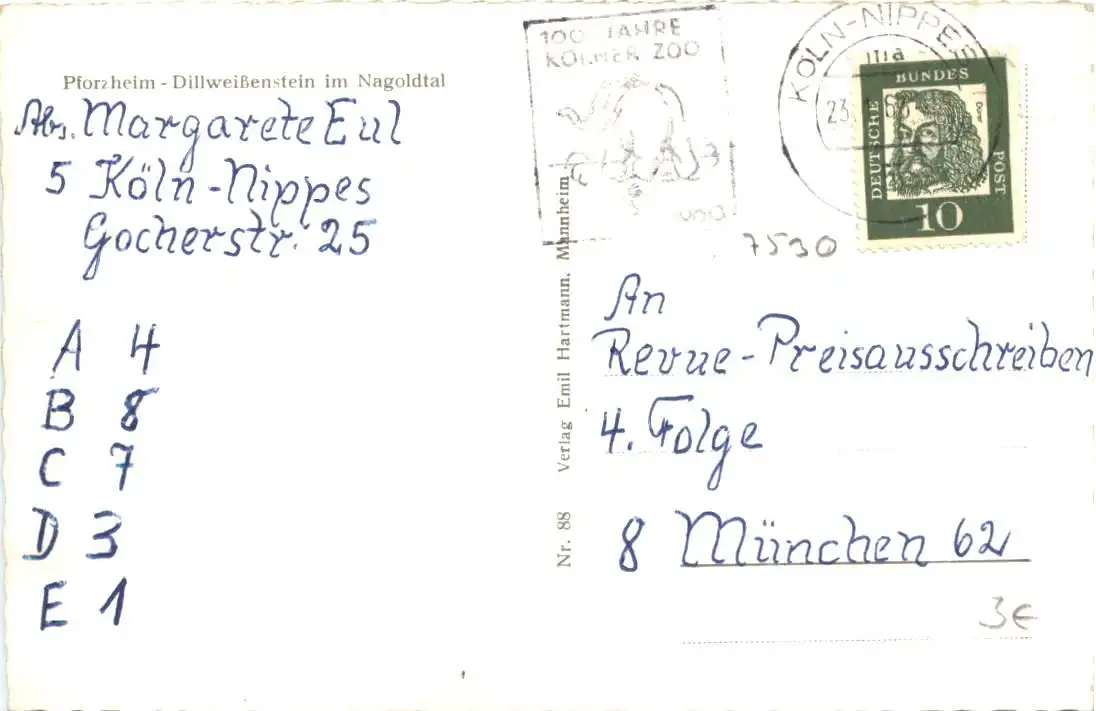 Pforzheim - Dillweißenstein im Nagoldtal
Abs. Margarete Eul
5 Köln-Nippes
Gocherstr. 25
A 4
B 8
C 7
D 3
E 1
Nr. 88 Verlag Emil Hartmann, Mannheim
100 JAHRE
KÖLNER ZOO
KÖLN-NIPPES
IIa
23.
DEUTSCHE
BUNDES
POST
10
7530
An
Revue-Preisausschreiben
4. Folge
8 München 62
3€